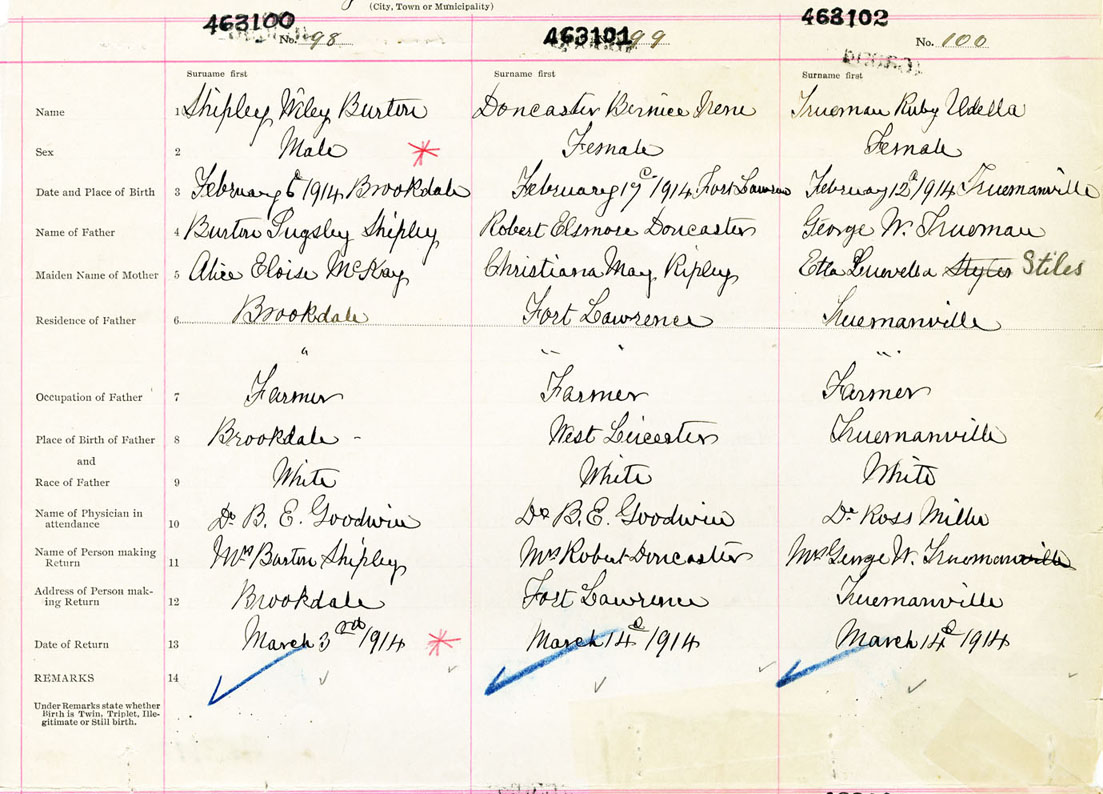 (City, Town or Municipality)
463100 463101 463102
No. 98 99 No. 100
Surname first Surname first Surname first
Name 1 Shipley Wiley Burton Doncaster Bernice Irene Trueman Ruby Udella
Sex 2 Male Female Female
Date and Place of Birth 3 February 6 1914 Brookdale February 19 1914 Fort Lawrence February 12 1914 Truemanville
Name of Father 4 Burton Pugsley Shipley Robert Elsmore Doncaster George W. Trueman
Maiden Name of Mother 5 Alice Eloise McKay Christiana May Ripley Etta Styles Stiles
Residence of Father 6 Brookdale Fort Lawrence Truemanville
" " " "
Occupation of Father 7 Farmer Farmer Farmer
Place of Birth of Father 8 Brookdale - West Leicester Truemanville
and
Race of Father 9 White White White
Name of Physician in
attendance 10 Dr B. E. Goodwin Dr B. E. Goodwin Dr Ross Millar
Name of Person making
Return 11 Mrs Burton Shipley Mrs Robert Doncaster Mrs George W. Truemanville
Address of Person mak-
ing Return 12 Brookdale Fort Lawrence Truemanville
Date of Return 13 March 3rd 1914 March 14 1914 March 14 1914
REMARKS 14
Under Remarks state whether
Birth is Twin, Triplet, Ille-
gitimate or Still birth.